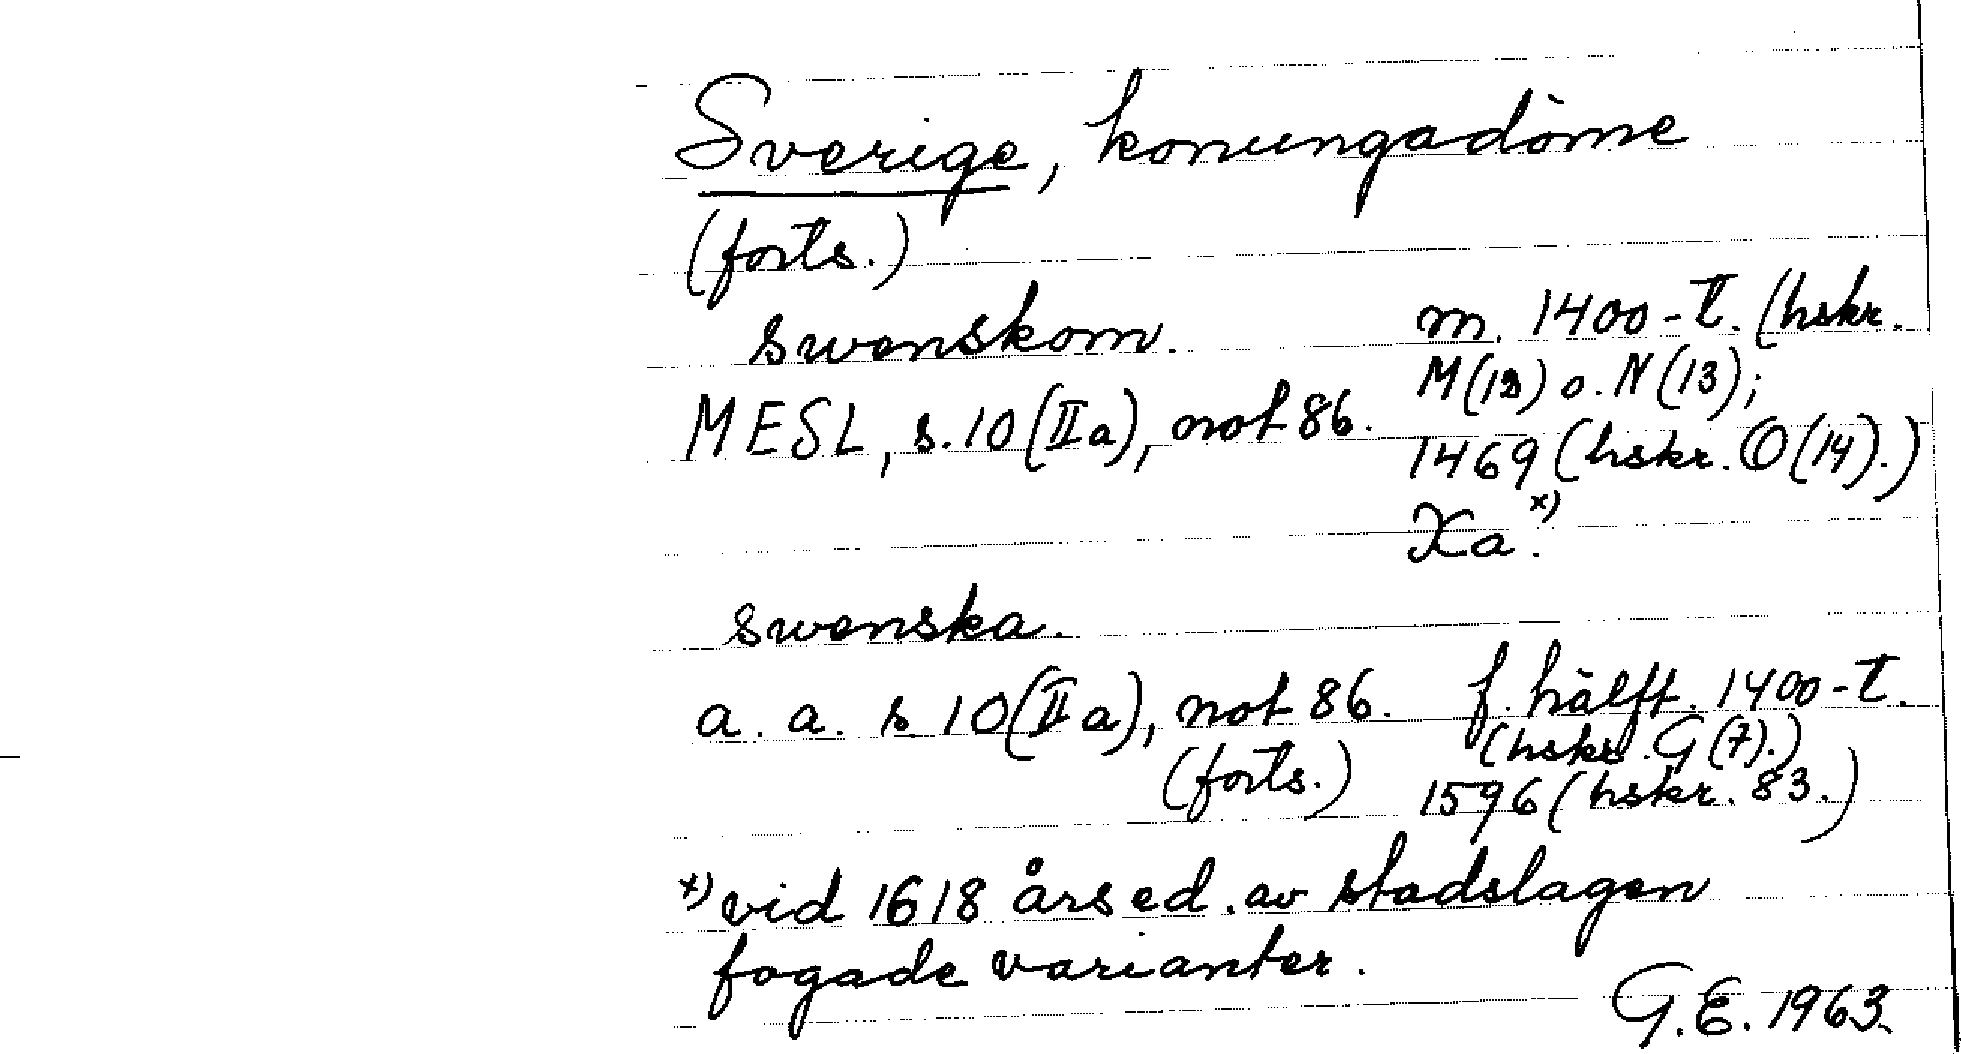 Sverige, konungadöme
(forts.)
swenskom.
MESL, s. 10 (IIa), not 86.
m. 1400-t. (hskr.
M(12) o. N(13);
1469 (hskr. O(14).)
Xa.x)
swenska.
a. a. s 10 (IIa), not 86.
(forts.)
f. hälft. 1400-t.
(hskr. G(7).)
1596 (hskr. 83.)
x) vid 1618 års ed. av stadslagen
fogade varianter.
G.E. 1963.